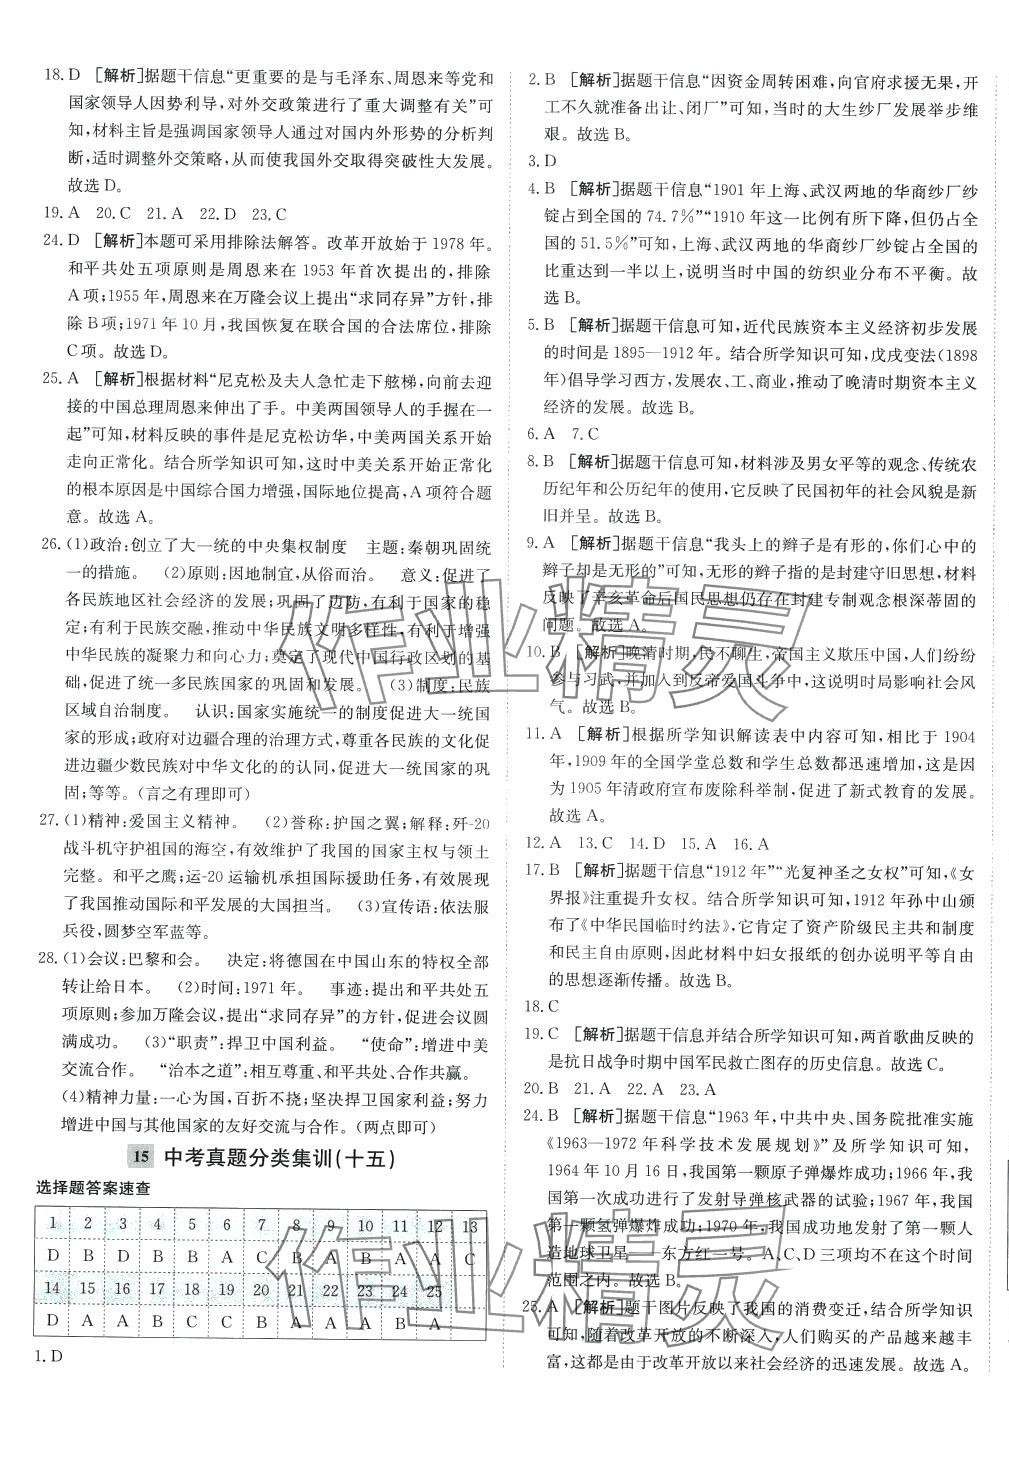 18. D　[解析]据题干信息“更重要的是与毛泽东、周恩来等党和
国家领导人因势利导，对外交政策进行了重大调整有关”可
知，材料主旨是强调国家领导人通过对国内外形势的分析判
断，适时调整外交策略，从而使我国外交取得突破性大发展。
故选 D。
19. A　20. C　21. A　22. D　23. C
24. D　[解析]本题可采用排除法解答。改革开放始于 1978 年。
和平共处五项原则是周恩来在 1953 年首次提出的，排除
A 项；1955 年，周恩来在万隆会议上提出“求同存异”方针，排
除 B 项；1971 年 10 月，我国恢复在联合国的合法席位，排除
C 项。故选 D。
25. A　[解析]根据材料“尼克松及夫人急忙走下舷梯，向前去迎
接的中国总理周恩来伸出了手。中美两国领导人的手握在一
起”可知，材料反映的事件是尼克松访华，中美两国关系开始
走向正常化。结合所学知识可知，这时中美关系开始正常化
的根本原因是中国综合国力增强，国际地位提高，A 项符合题
意。故选 A。
26. (1)政治：创立了大一统的中央集权制度　主题：秦朝巩固统
一的措施。　(2)原则：因地制宜，从俗而治。　意义：促进了
各民族地区社会经济的发展；巩固了边防，有利于国家的稳
定；有利于民族交融，推动中华民族文明多样性，有利于增强
中华民族的凝聚力和向心力；奠定了现代中国行政区划的基
础，促进了统一多民族国家的巩固和发展。　(3)制度：民族
区域自治制度。　认识：国家实施统一的制度促进大一统国
家的形成；政府对边疆合理的治理方式，尊重各民族的文化促
进边疆少数民族对中华文化的的认同，促进大一统国家的巩
固；等等。(言之有理即可)
27. (1)精神：爱国主义精神。　(2)誉称：护国之翼；解释：歼-20
战斗机守护祖国的海空，有效维护了我国的国家主权与领土
完整。和平之鹰；运-20 运输机承担国际援助任务，有效展现
了我国推动国际和平发展的大国担当。　(3)宣传语：依法服
兵役，圆梦空军蓝等。
28. (1)会议：巴黎和会。　决定：将德国在中国山东的特权全部
转让给日本。　(2)时间：1971 年。　事迹：提出和平共处五
项原则；参加万隆会议，提出“求同存异”的方针，促进会议圆
满成功。　(3)“职责”：捍卫中国利益。　“使命”：增进中美
交流合作。　“治本之道”：相互尊重、和平共处、合作共赢。
(4)精神力量：一心为国，百折不挠；坚决捍卫国家利益；努力
增进中国与其他国家的友好交流与合作。(两点即可)
15　中考真题分类集训(十五)
选择题答案速查
1　2　3　4　5　6　7　8　9　10　11　12　13
D　B　D　B　B　A　C　B　A　B　A　A　C
14　15　16　17　18　19　20　21　22　23　24　25
D　A　A　B　C　C　B　A　A　A　B　A
1. D
2. B　[解析]据题干信息“因资金周转困难，向官府求援无果，开
工不久就准备出让、闭厂”可知，当时的大生纱厂发展举步维
艰。故选 B。
3. D
4. B　[解析]据题干信息“1901 年上海、武汉两地的华商纱厂纱
锭占到全国的 74.7%”“1910 年这一比例有所下降，但仍占全
国的 51.5%”可知，上海、武汉两地的华商纱厂纱锭占全国的
比重达到一半以上，说明当时中国的纺织业分布不平衡。故
选 B。
5. B　[解析]据题干信息可知，近代民族资本主义经济初步发展
的时间是 1895—1912 年。结合所学知识可知，戊戌变法(1898
年)倡导学习西方，发展农、工、商业，推动了晚清时期资本主义
经济的发展。故选 B。
6. A　7. C
8. B　[解析]据题干信息可知，材料涉及男女平等的观念、传统农
历纪年和公历纪年的使用，它反映了民国初年的社会风貌是新
旧并呈。故选 B。
9. A　[解析]据题干信息“我头上的辫子是有形的，你们心中的
辫子却是无形的”可知，无形的辫子指的是封建守旧思想，材料
反映了辛亥革命后国民思想仍存在封建专制观念根深蒂固的
问题。故选 A。
10. B　[解析]晚清时期，民不聊生，帝国主义欺压中国，人们纷纷
参与习武，并加入到反帝爱国斗争中，这说明时局影响社会风
气。故选 B。
11. A　[解析]根据所学知识解读表中内容可知，相比于 1904
年，1909 年的全国学堂总数和学生总数都迅速增加，这是因
为 1905 年清政府宣布废除科举制，促进了新式教育的发展。
故选 A。
12. A　13. C　14. D　15. A　16. A
17. B　[解析]据题干信息“1912 年”“光复神圣之女权”可知，《女
界报》注重提升女权。结合所学知识可知，1912 年孙中山颁
布了《中华民国临时约法》，它肯定了资产阶级民主共和制度
和民主自由原则，因此材料中妇女报纸的创办说明平等自由
的思想逐渐传播。故选 B。
18. C
19. C　[解析]据题干信息并结合所学知识可知，两首歌曲反映的
是抗日战争时期中国军民救亡图存的历史信息。故选 C。
20. B　21. A　22. A　23. A
24. B　[解析]据题干信息“1963 年，中共中央、国务院批准实施
《1963—1972 年科学技术发展规划》”及所学知识可知，
1964 年 10 月 16 日，我国第一颗原子弹爆炸成功；1966 年，我
国第一次成功进行了发射导弹核武器的试验；1967 年，我国
第一颗氢弹爆炸成功；1970 年，我国成功地发射了第一颗人
造地球卫星——东方红一号。A、C、D 三项均不在这个时间
范围之内。故选 B。
25. A　[解析]题干图片反映了我国的消费变迁，结合所学知识
可知，随着改革开放的不断深入，人们购买的产品越来越丰
富，这都是由于改革开放以来社会经济的迅速发展。故选 A。
作业精灵
作业精灵